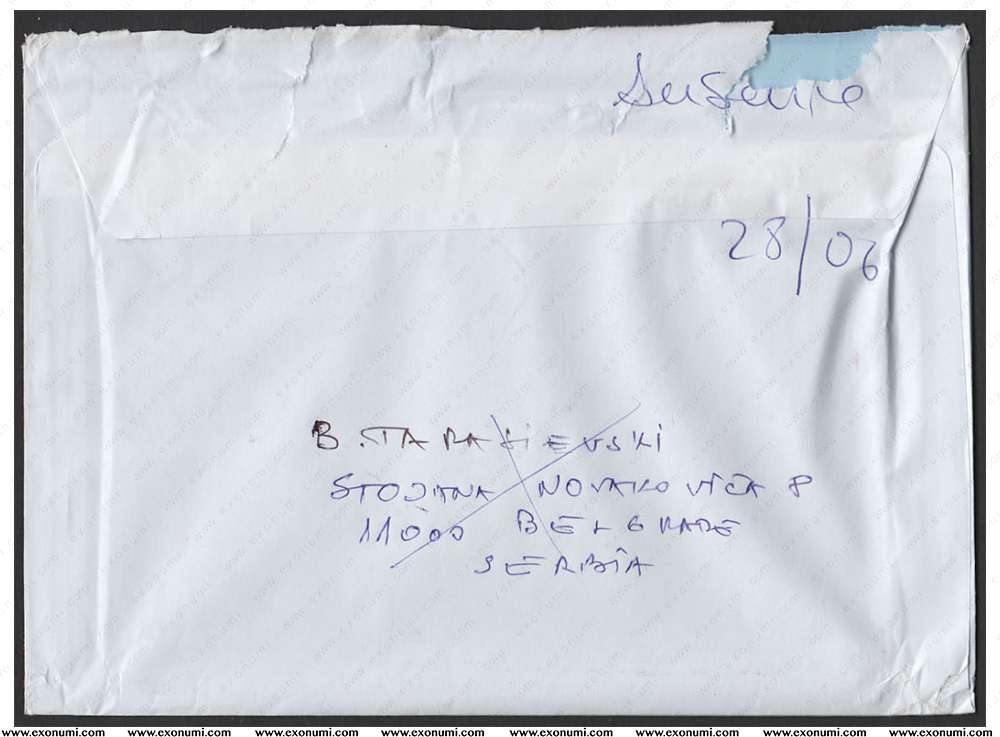 28/06
B. TARASIEVSKI
STOJANA NOVAKOVIĆA 8
11000 BELGRADE
SERBIA
www.exonumi.com www.exonumi.com www.exonumi.com www.exonumi.com www.exonumi.com www.exonumi.com www.exonumi.com www.exonumi.com